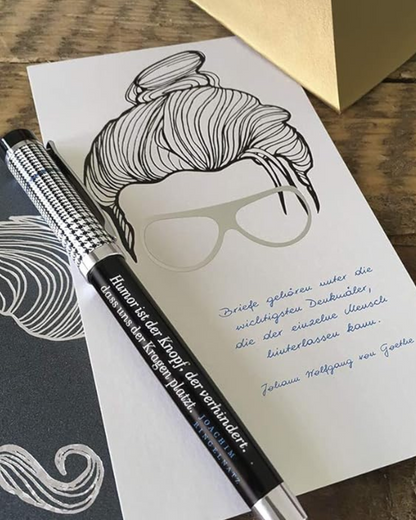 Briefe gehören unter die
wichtigsten Denkmäler,
die der einzelne Mensch
hinterlassen kann.
Johann Wolfgang von Goethe
Humor ist der Knopf, der verhindert,
dass uns der Kragen platzt.
JOACHIM
RINGELNATZ